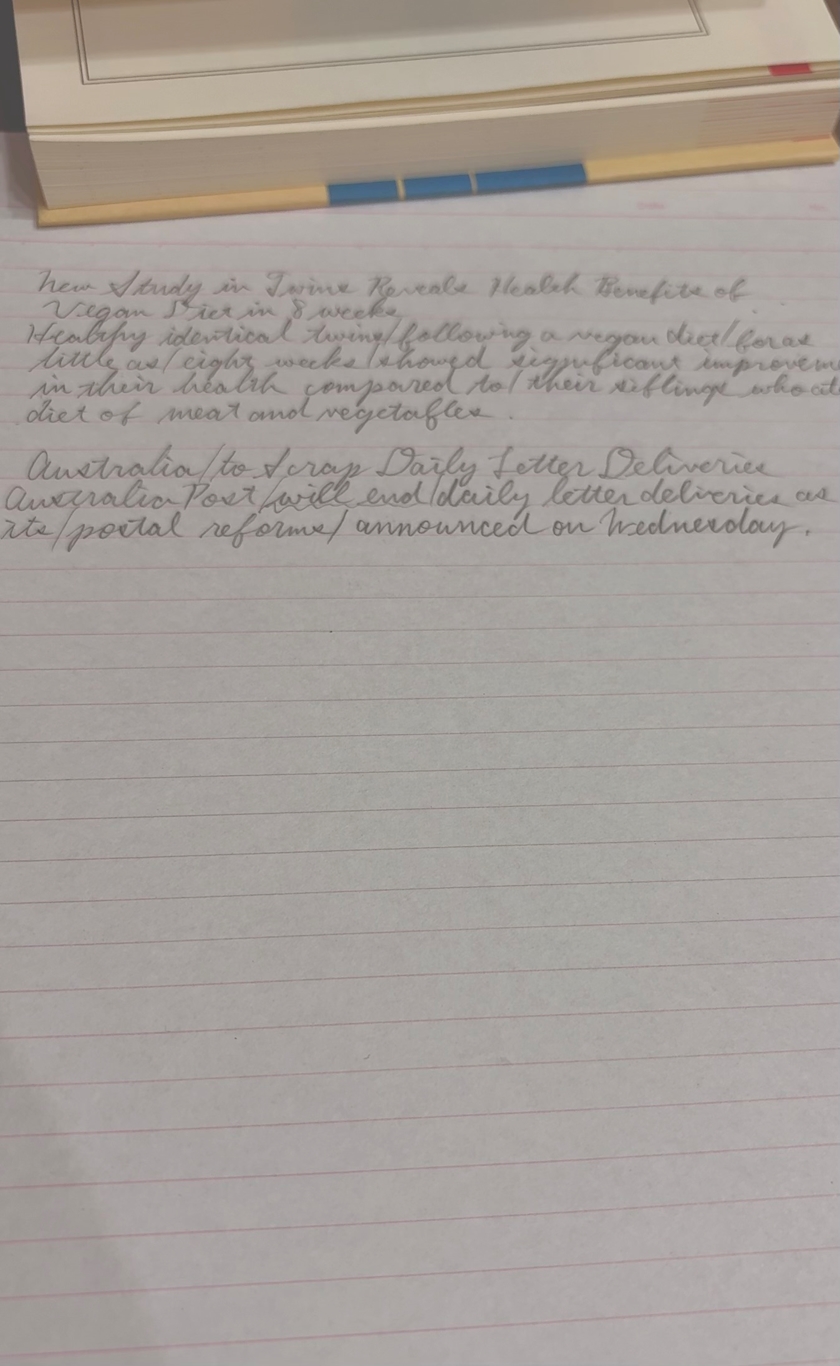 New Study in Twins Reveals Health Benefits of
Vegan Diet in 8 weeks
Healthy identical twins/following a vegan diet/for as
little as/eight weeks/showed significant improvem
in their health compared to/their siblings who
diet of meat and vegetables.
Australia/to Scrap Daily Letter Deliveries
Australia Post/will end/daily letter deliveries as
its/postal reforms/announced on Wednesday.